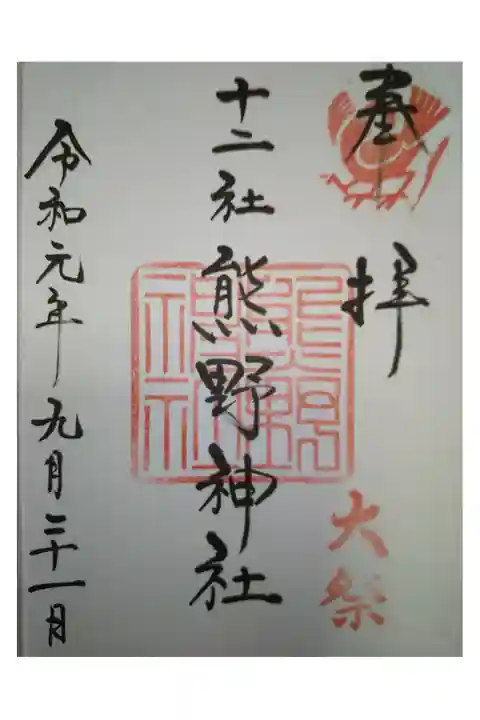 奉拝
大祭
十二社熊野神社
令和元年九月二十一日